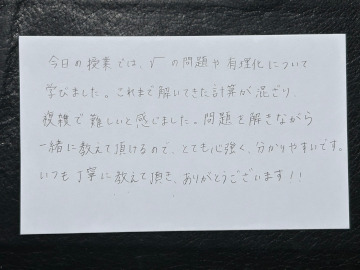 今日の授業では、√の問題や有理化について
学びました。これまで解いてきた計算が混ざり、
複雑で難しいと感じました。問題を解きながら
一緒に教えて頂けるので、とても心強く、分かりやすいです。
いつも丁寧に教えて頂き、ありがとうございます！！